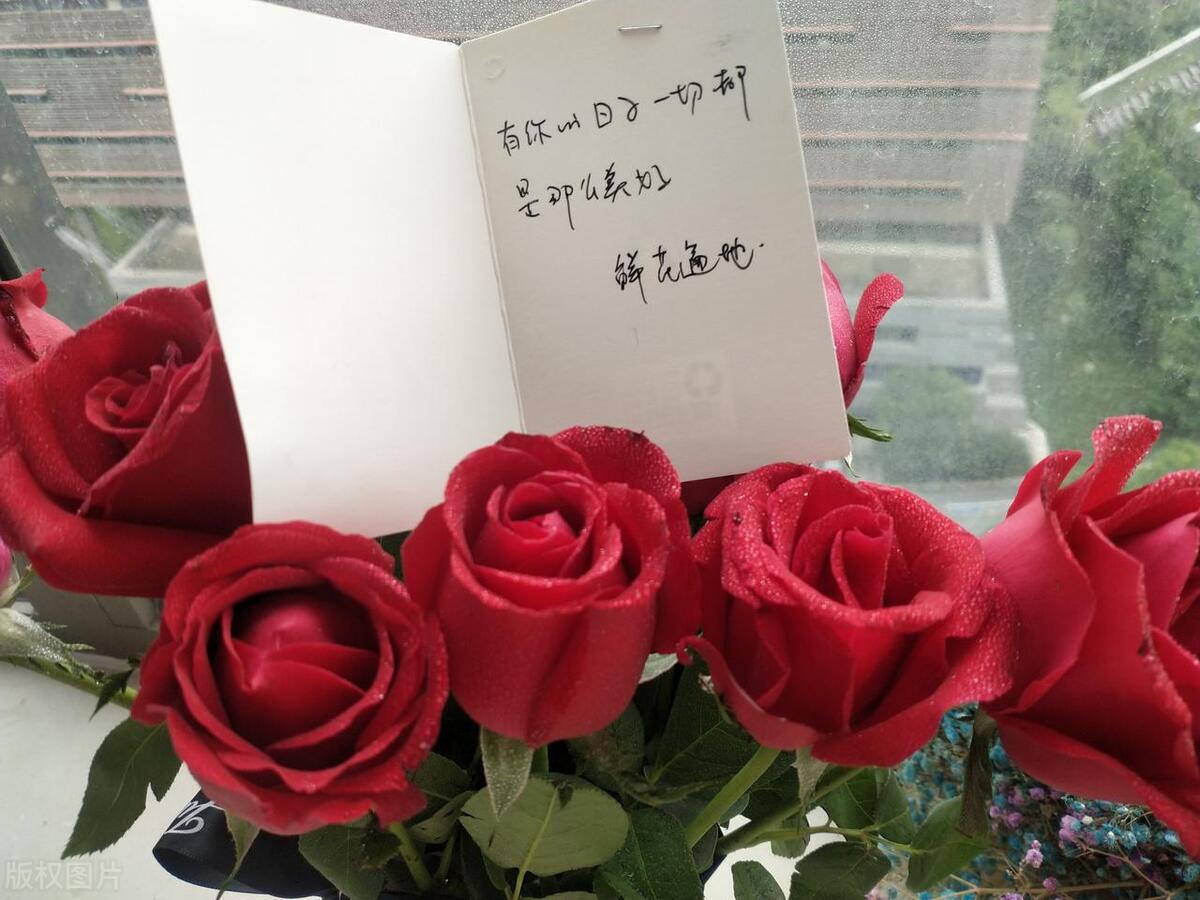 有你的日子一切都
是那么美好
鲜花遍地.
版权图片